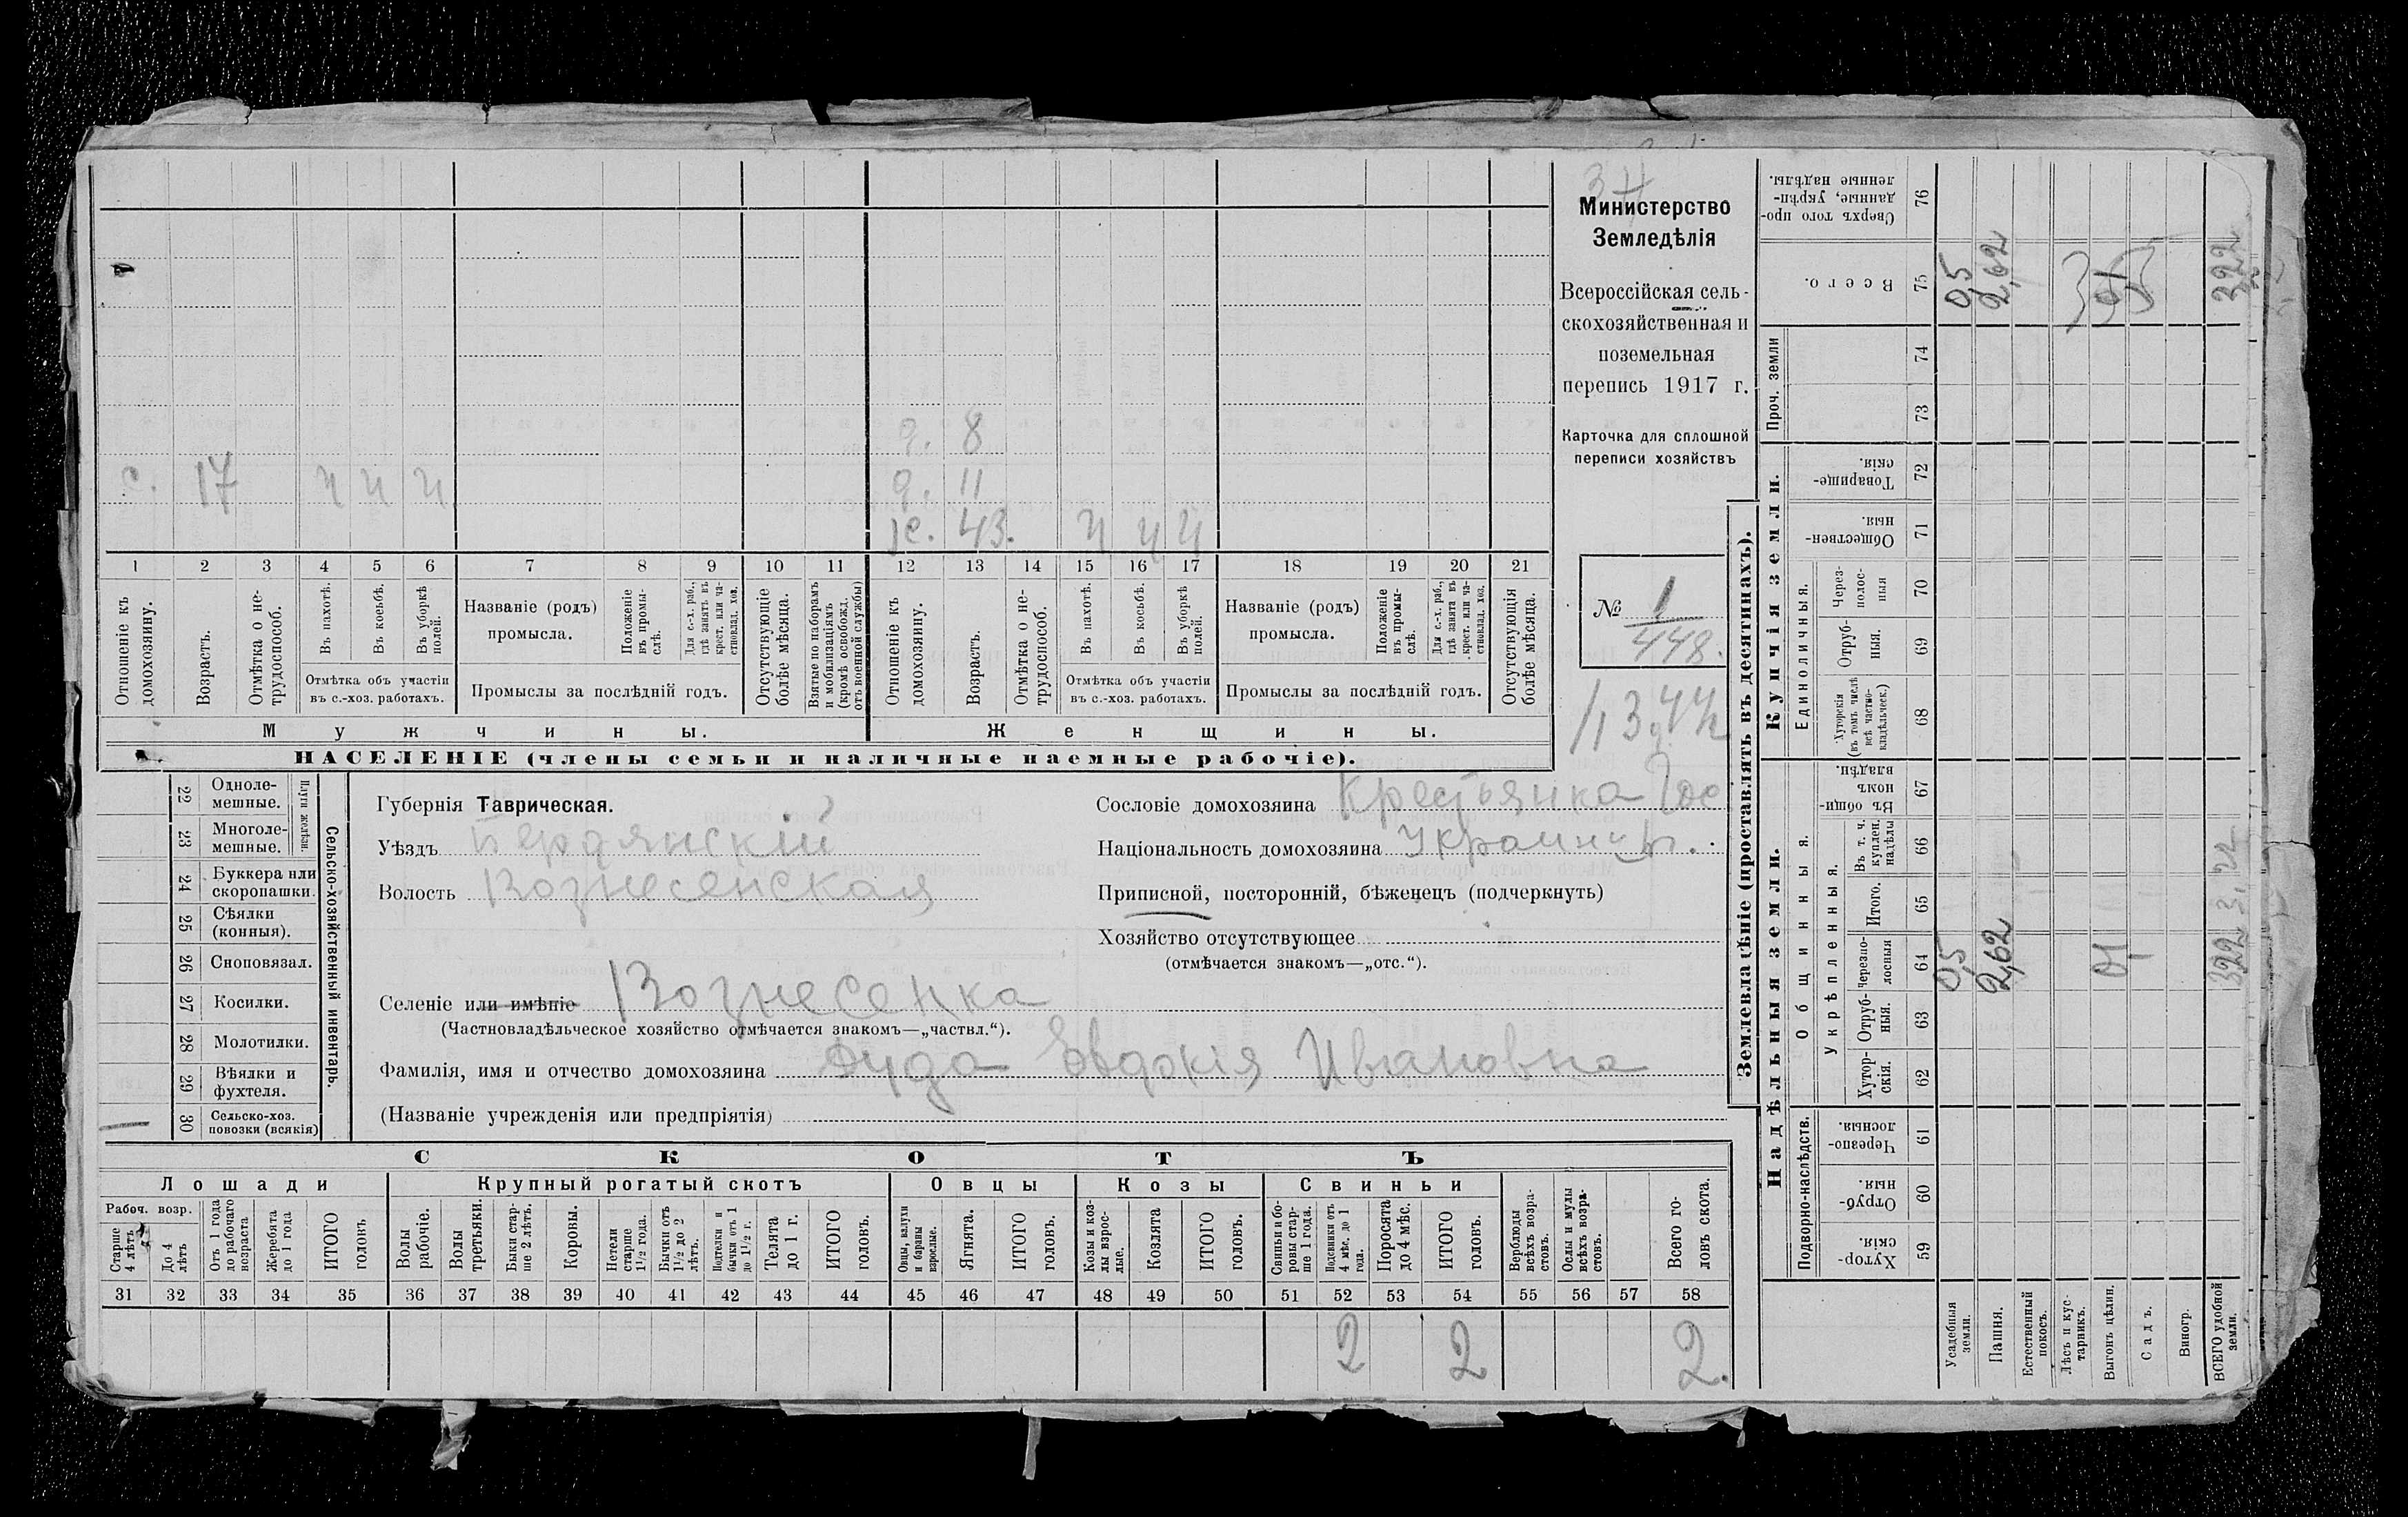 Министерство
Земледѣлія
Всероссійская сель-
скохозяйственная и
поземельная
перепись 1917 г.
Карточка для сплошной
переписи хозяйствъ
№ 1
448.
д. 8
с. 17 ч ч ч д. 11
ж. 43. ч ч ч
1 2 3 4 5 6 7 8 9 10 11 12 13 14 15 16 17 18 19 20 21
Отношеніе къ домохозяину.
Возрастъ.
Отмѣтка о не-трудоспособ.
Въ пахотѣ.
Въ косьбѣ.
Въ уборкѣ полей.
Отмѣтка объ участіи
въ с.-хоз. работахъ.
Названіе (родъ)
промысла.
Положеніе въ промы-слѣ.
Для с.-х. раб., гдѣ занятъ въ крест. или ча-стновлад. хоз.
Промыслы за послѣдній годъ.
Отсутствующіе болѣе мѣсяца.
Взятые по наборамъ и мобилизаціямъ (кромѣ освобожд. отъ военной службы)
Отношеніе къ домохозяину.
Возрастъ.
Отмѣтка о не-трудоспособ.
Въ пахотѣ.
Въ косьбѣ.
Въ уборкѣ полей.
Отмѣтка объ участіи
въ с.-хоз. работахъ.
Названіе (родъ)
промысла.
Положеніе въ промы-слѣ.
Для с.-х. раб., гдѣ занята въ крест. или ча-стновлад. хоз.
Промыслы за послѣдній годъ.
Отсутствующія болѣе мѣсяца.
Мужчины. Женщины.
НАСЕЛЕНІЕ (члены семьи и наличные наемные рабочіе).
Сельско-хозяйственный инвентарь.
Плуги желѣзн.
22 Одноле-мешные.
23 Многоле-мешные.
24 Буккера или скоропашки.
25 Сѣялки (конныя).
26 Сноповязал.
27 Косилки.
28 Молотилки.
29 Вѣялки и фухтеля.
30 Сельско-хоз. повозки (всякія)
Губернія Таврическая.
Уѣздъ Бердянскій
Волость Вознесенская
Селеніе или имѣніе Вознесенка
(Частновладѣльческое хозяйство отмѣчается знакомъ—„частвл.“).
Фамилія, имя и отчество домохозяина Дуда Евдокія Ивановна
(Названіе учрежденія или предпріятія)
Сословіе домохозяина Крестьянка
Національность домохозяина Украинцы.
Приписной, посторонній, бѣженецъ (подчеркнуть)
Хозяйство отсутствующее
(отмѣчается знакомъ—„отс.“).
СКОТЪ
Лошади Крупный рогатый скотъ Овцы Козы Свиньи
Рабоч. возр.
Старше 4 лѣтъ
До 4 лѣтъ
Отъ 1 года до рабочаго возраста
Жеребята до 1 года
ИТОГО головъ
Волы рабочіе.
Волы третьяки.
Быки стар-ше 2 лѣтъ.
Коровы.
Нетели старше 1½ года.
Бычки отъ 1½ до 2 лѣтъ.
Подтелки и бычки отъ 1 до 1½ г.
Телята до 1 г.
ИТОГО головъ.
Овцы, валухи и бараны взрослые.
Ягнята.
ИТОГО головъ.
Козы и коз-лы взрос-лые.
Козлята
ИТОГО головъ.
Свиньи и бо-ровы стар-ше 1 года.
Подсвинки отъ 4 мѣс. до 1 года.
Поросята до 4 мѣс.
ИТОГО головъ.
Верблюды всѣхъ возра-стовъ.
Ослы и мулы всѣхъ возра-стовъ.
Всего го-ловъ скота.
31 32 33 34 35 36 37 38 39 40 41 42 43 44 45 46 47 48 49 50 51 52 53 54 55 56 57 58
2 2 2.
Землевладѣніе (проставлять въ десятинахъ).
Надѣльныя земли. Купчія земли. Проч. земли
Подворно-наслѣдств. Общинныя. Единоличныя.
Укрѣпленныя.
59 Хутор-скія.
60 Отруб-ныя.
61 Черезпо-лосныя.
62 Хутор-скія.
63 Отруб-ныя.
64 Черезпо-лосныя
65 Итого.
66 Въ т. ч. куплен. надѣлы
67 Въ общин-номъ владѣн.
68 Хуторскія (въ томъ числѣ всѣ частно-владѣльческ.)
69 Отруб-ныя.
70 Через-полос-ныя
71 Обществен-ныя.
72 Товарище-скія.
73
74
75 Всего.
76 Сверхъ того про-данные, укрѣп-ленные надѣлы.
Усадебныя земли. 0,5 0,5
Пашня. 2,62 2,62
Естественный покосъ.
Лѣсъ и кус-тарникъ.
Выгонъ цѣлин.
Садъ.
Виногр.
ВСЕГО удобной земли. 322 3,22 322